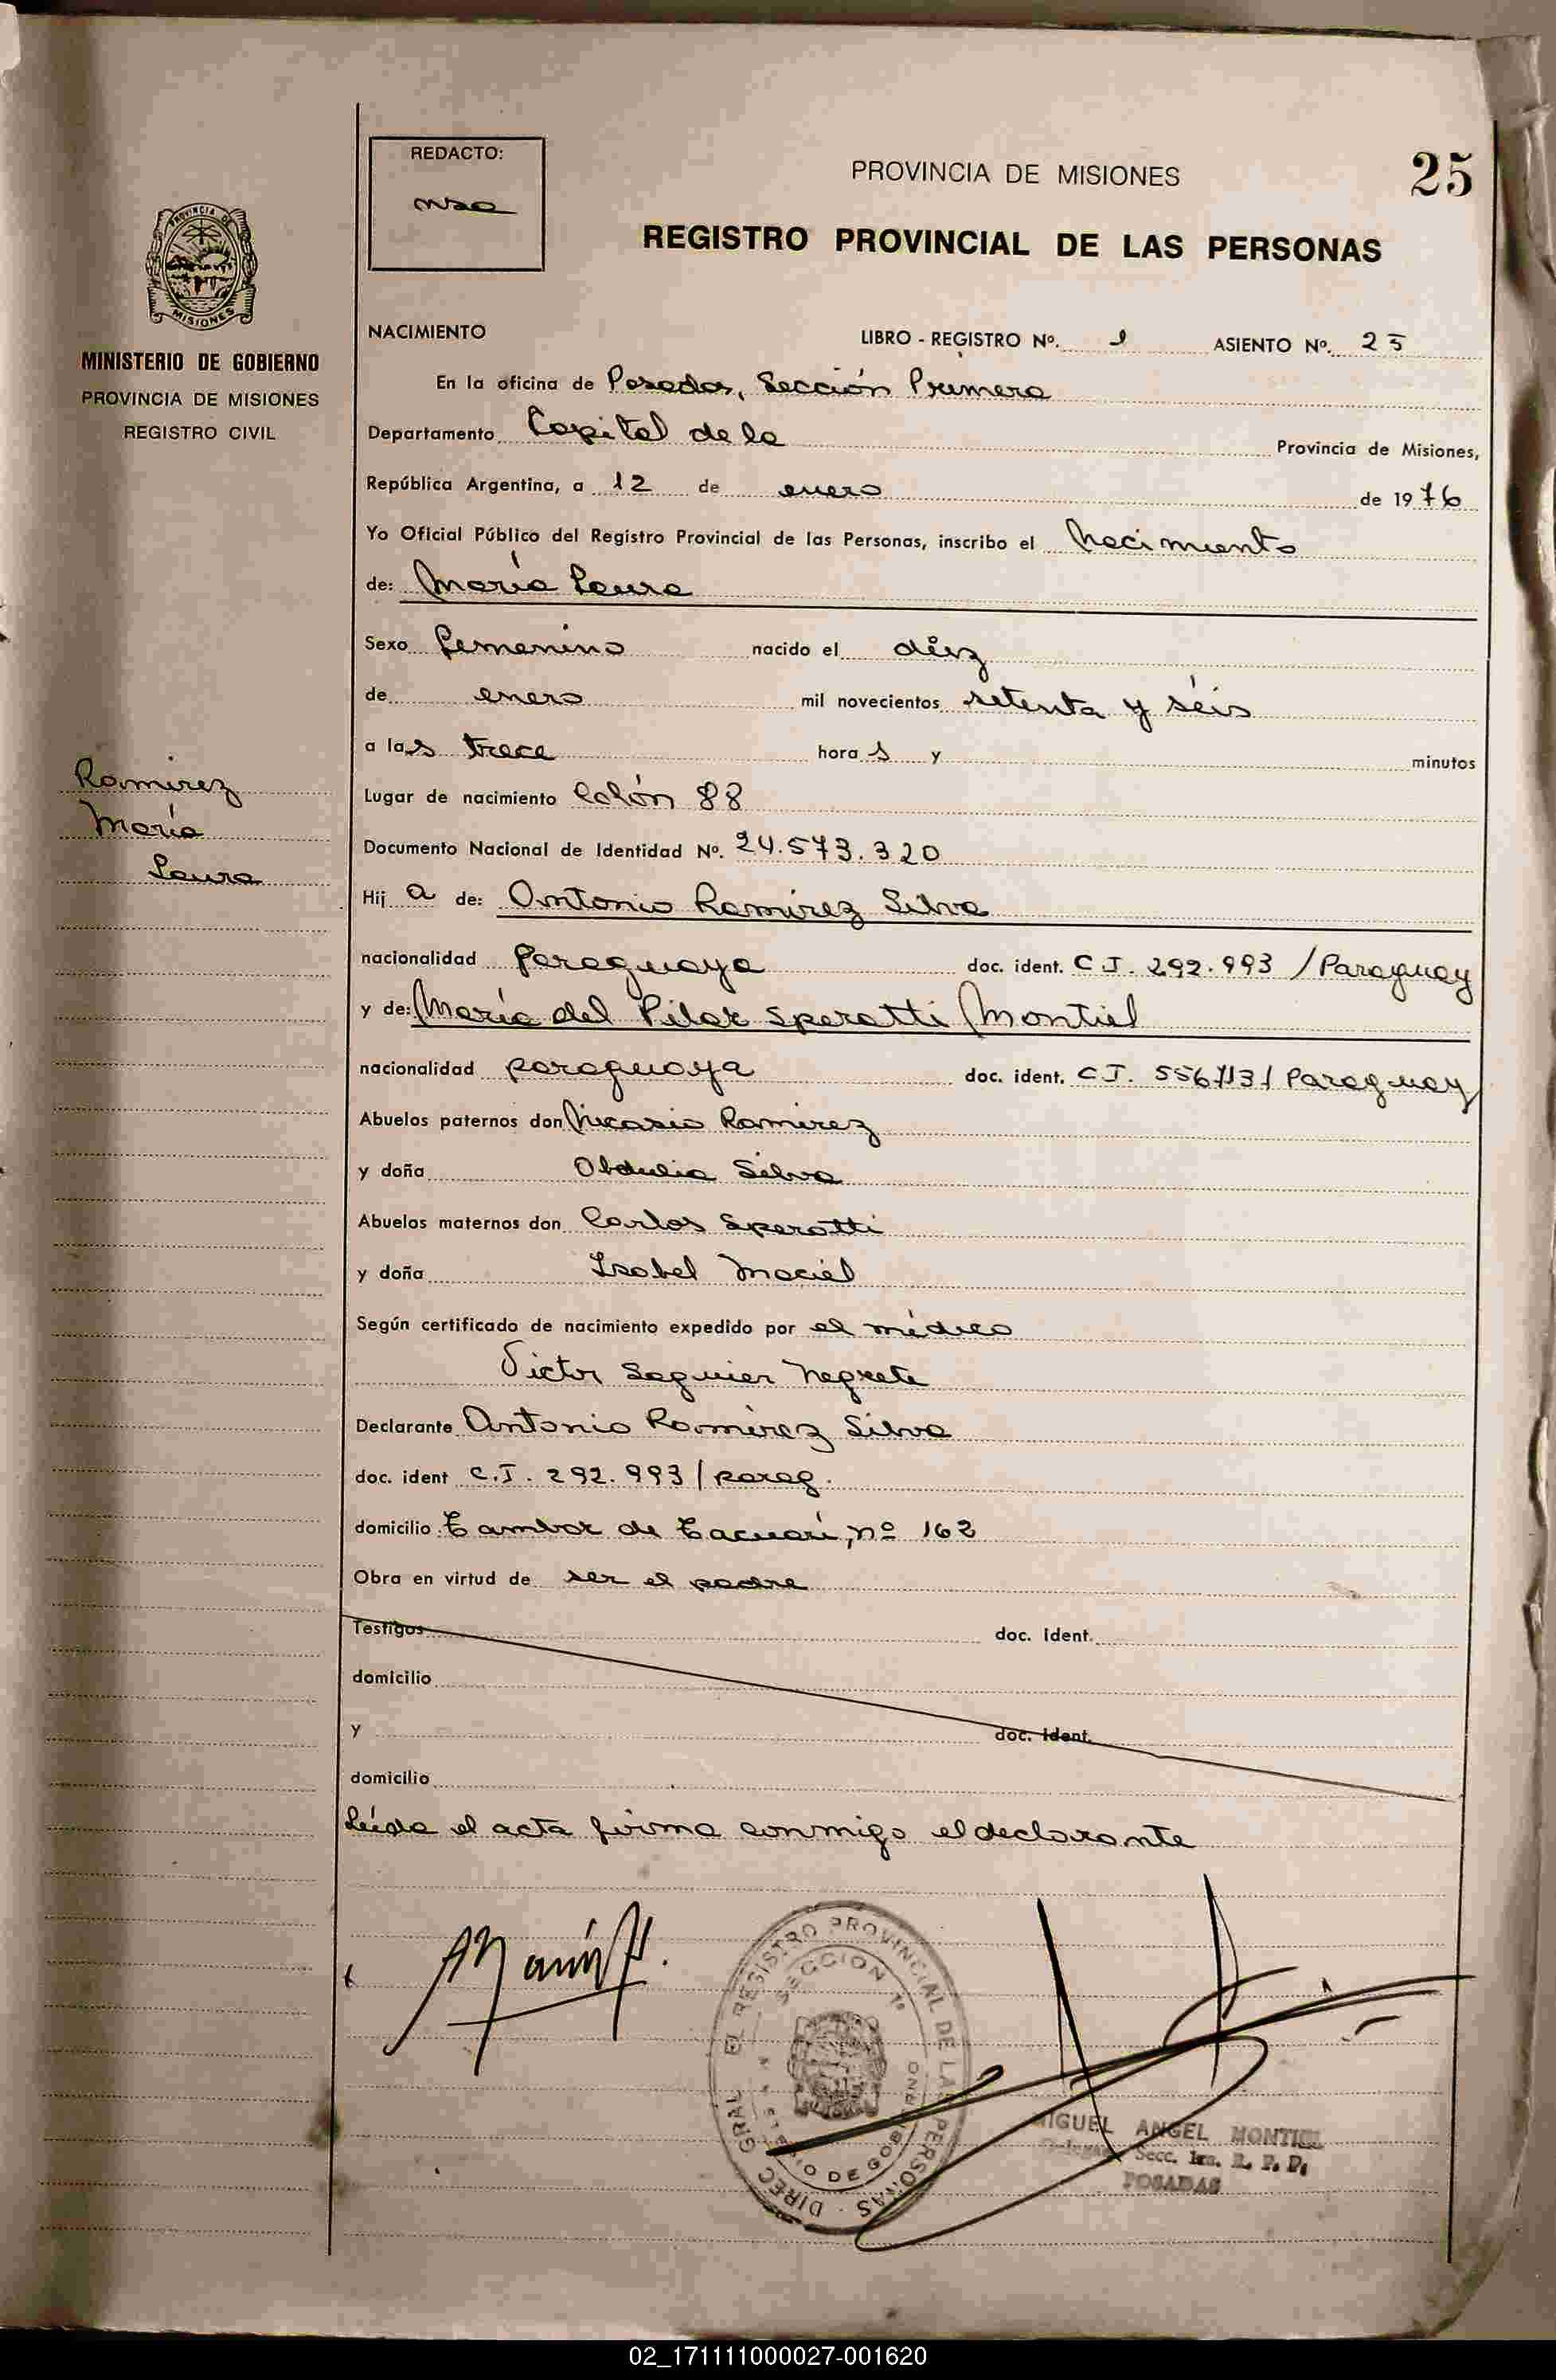 REDACTO:
PROVINCIA DE MISIONES
25
REGISTRO PROVINCIAL DE LAS PERSONAS
PROVINCIA DE
MISIONES
MINISTERIO DE GOBIERNO
PROVINCIA DE MISIONES
REGISTRO CIVIL
Ramirez
María
Laura
NACIMIENTO LIBRO - REGISTRO Nº. 1 ASIENTO Nº. 25
En la oficina de Posadas, Sección Primera
Departamento Capital de la Provincia de Misiones,
República Argentina, a 12 de enero de 1976
Yo Oficial Público del Registro Provincial de las Personas, inscribo el Nacimiento
de: María Laura
Sexo femenino nacido el diez
de enero mil novecientos setenta y séis
a las trece horas y minutos
Lugar de nacimiento Colón 88
Documento Nacional de Identidad Nº. 24.573.320
Hija de: Antonio Ramírez Silva
nacionalidad paraguaya doc. ident. C I. 292.993 / Paraguay
y de: María del Pilar Speratti Montiel
nacionalidad paraguaya doc. ident. C I. 556713 / Paraguay
Abuelos paternos don Nicasio Ramirez
y doña Obdulia Silva
Abuelos maternos don Carlos Speratti
y doña Isabel Maciel
Según certificado de nacimiento expedido por el médico
Victor Seguier Negrete
Declarante Antonio Ramírez Silva
doc. ident C.I. 292.993 / parag.
domicilio Tambor de Tacuarí, nº 162
Obra en virtud de ser el padre
Testigos doc. ident.
domicilio
y doc. ident.
domicilio
Leída el acta firma conmigo el declarante
DIREC GRAL EL REGISTRO PROVINCIAL DE LAS PERSONAS
SECCION 1ª
MINISTERIO DE GOBIERNO
MIGUEL ANGEL MONTIEL
Delegado Secc. 1ra. R. P. P.
POSADAS
02_171111000027-001620